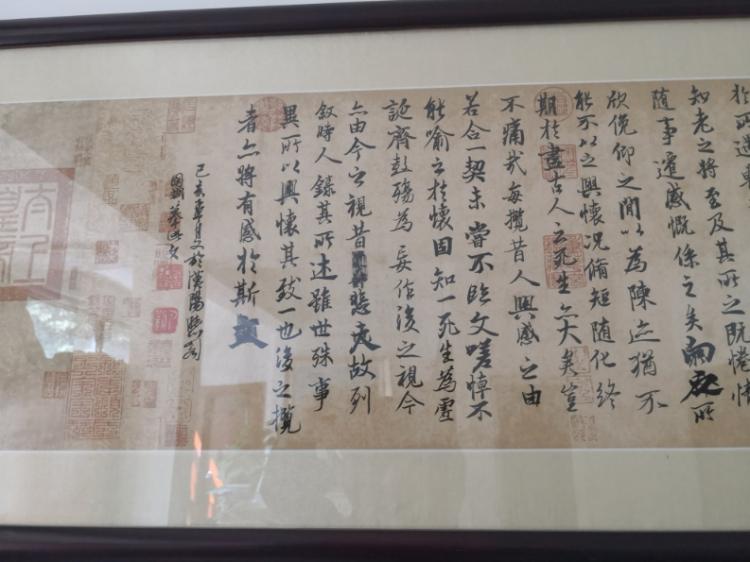 於所遇
知老之將至及其所之既惓情
隨事遷感慨係之矣向之所
欣俛仰之閒以為陳迹猶不
能不以之興懷況脩短隨化終
期於盡古人云死生亦大矣豈
不痛哉每攬昔人興感之由
若合一契未嘗不臨文嗟悼不
能喻之於懷固知一死生為虛
誕齊彭殤為妄作後之視今
亦由今之視昔悲夫故列
敘時人錄其所述雖世殊事
異所以興懷其致一也後之攬
者亦將有感於斯文
己亥年月於漢陽